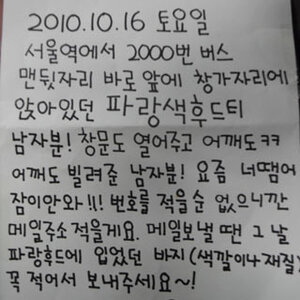 2010.10.16 토요일
서울역에서 2000번 버스
맨뒷자리 바로앞에 창가자리에
앉아있던 파랑색후드티
남자분! 창문도 열어주고 어깨도ㅋㅋ
어깨도 빌려준 남자분! 요즘 너땜에
잠이안와!!! 번호를 적을순 없으니깐
메일주소 적을게요. 메일보낼 땐 그 날
파랑후드에 입었던 바지(색깔이나 재질)
꼭 적어서 보내주세요~!